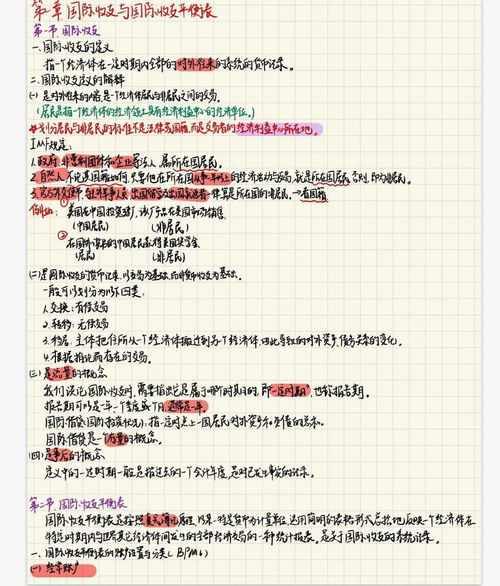 第二章 国际收支与国际收支平衡表
第一节 国际收支
一、国际收支的定义
指一个经济体在一定时期内全部的对外往来的系统的货币记录。
二、国际收支定义的解释
(一) 是对外往来的内容,是一个经济体居民与非居民之间的交易。
(居民是指一个经济体的经济领土具有经济利益中心的经济单位。)
划分居民与非居民的标准不是法律或国籍,而是交易者的经济利益中心所在地。
IMF规定:
1. 政府、非营利团体和企业等法人,属所在国居民。
2. 自然人:不论其国籍如何,只要他在所在国从事1年以上的经济活动与交易,就是所在国居民,否则,即为非居民。
3. 官方外交使节、驻外军事人员、出国留学及出国就医者一律算是所在国的非居民。一看国籍
例如: ① 美国在中国投资建厂,该厂产品在美国市场销售
(中国居民) (非居民)
② 在国外课的中国居民获得美国奖学金
(居民) (非居民)
(二) 是国际收支的货币记录,以交易为基础,而非货币收支为基础。
一般可以划分为以下四类:
1. 交换:有偿交易
2. 转移:无偿交易
3. 移居:主体把住所从一个经济体搬迁到另一个经济体,因此导致的对外资产、债务关系的变化。
4. 根据推论而存在的交易。
(三) 是流量的概念
我们谈论国际收支时,需要指出它是属于哪个时期的,即一定时期,也称报告期。
报告期可以是一年、一个季度或一个月,通常是一年
国际借贷(国际投资状况),指一定时点上一国居民对外资产和负债的总和。
国际借贷是一个存量的概念。
(四) 是事后的概念
定义中的一定时期一般是指过去的一个会计年度,是对已发生事实的记录。
第二节 国际收支平衡表
国际收支平衡表是按照复式簿记原理,以某一特定货币为计量单位,运用简明的表格形式总括地反映一个经济体在
特定时期内与世界其它经济体间发生的全部经济交易的一种统计报表,是关于国际收支的系统记录。
一、国际收支平衡表的账户设置与分类(BPM6)
(一) 经常账户